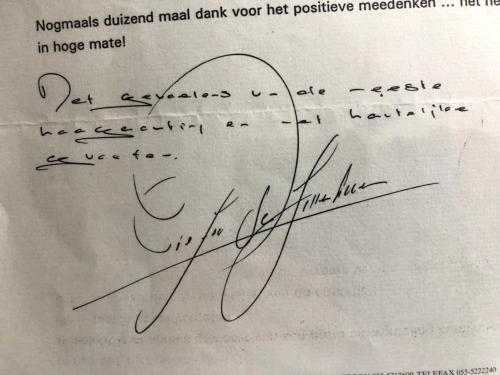 Nogmaals duizend maal dank voor het positieve meedenken ... het
in hoge mate!
Met gevoelens van de meeste
hoogachting en met hartelijke
groeten.
TELEFAX 055-5222240